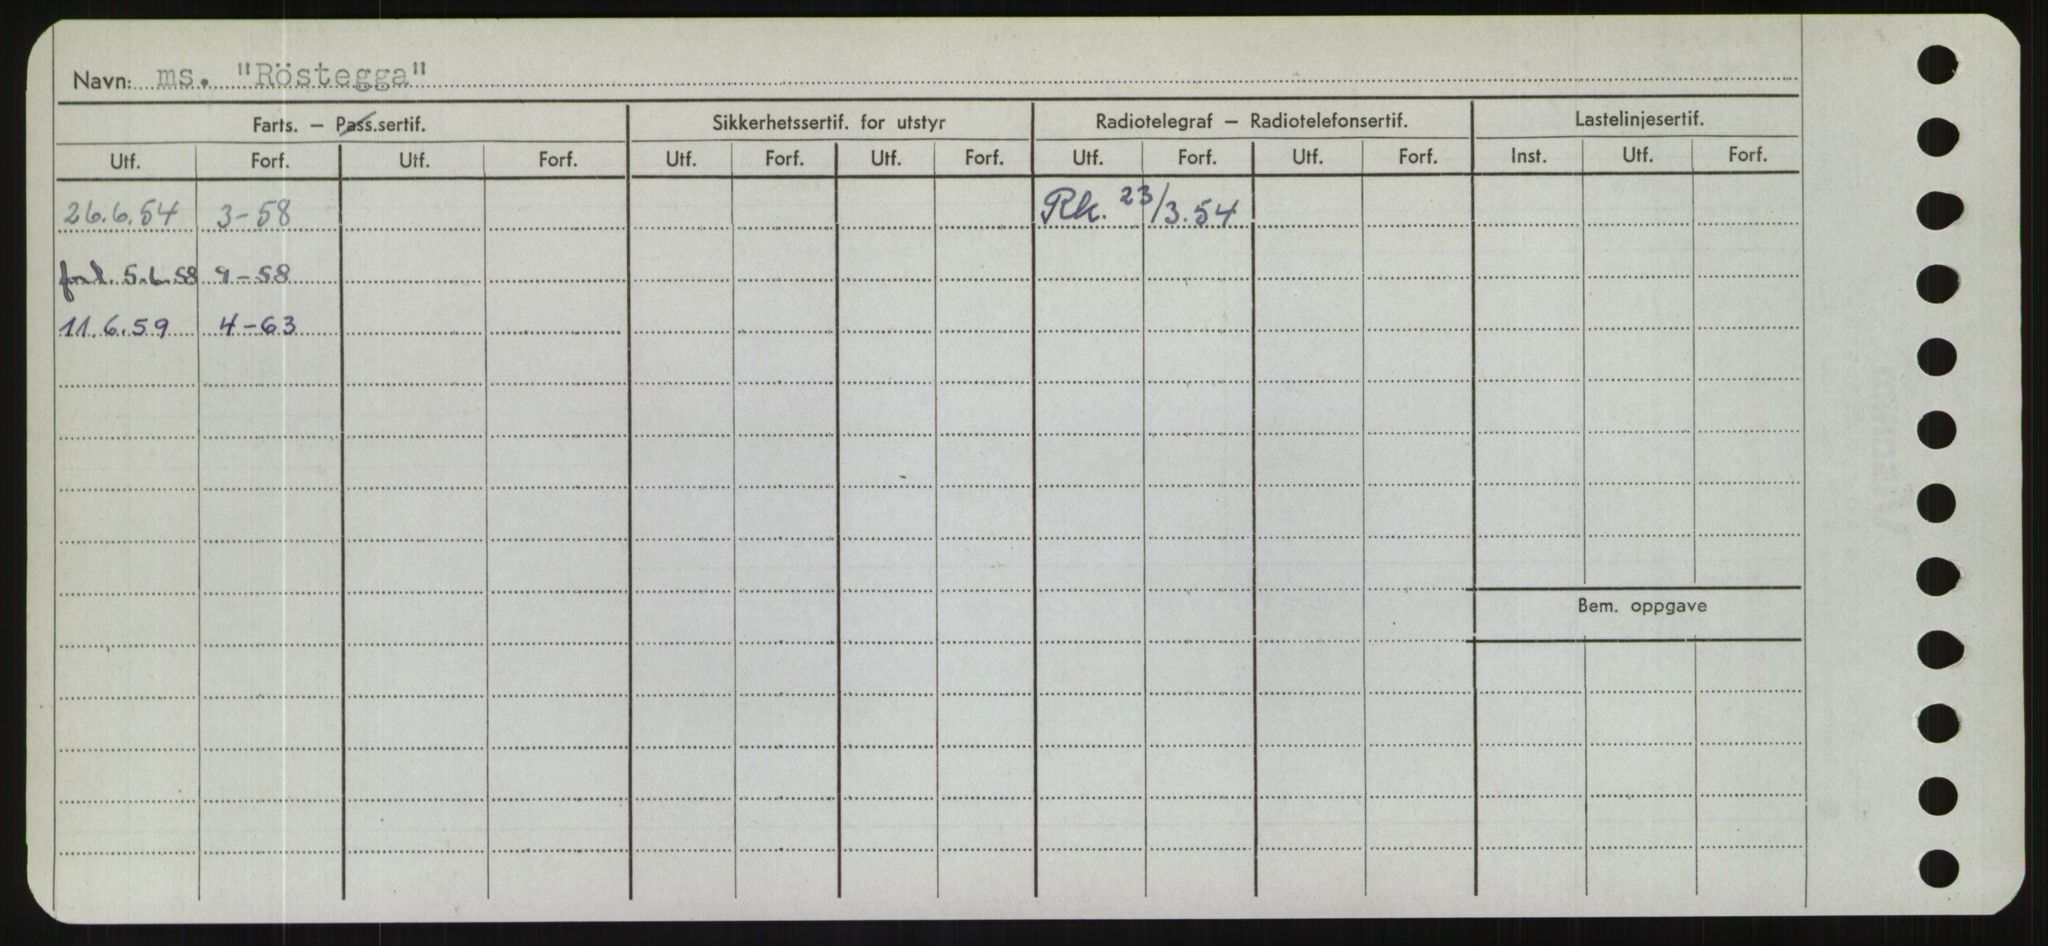 Navn: ms. "Röstegga"
Farts. – Pass.sertif. Sikkerhetssertif. for utstyr Radiotelegraf – Radiotelefonsertif. Lastelinjesertif.
Utf. Forf. Utf. Forf. Utf. Forf. Utf. Forf. Utf. Forf. Utf. Forf. Inst. Utf. Forf.
26.6.54 3-58 Rk. 23/3.54
forl. 5.6.58 9-58
11.6.59 4-63
Bem. oppgave